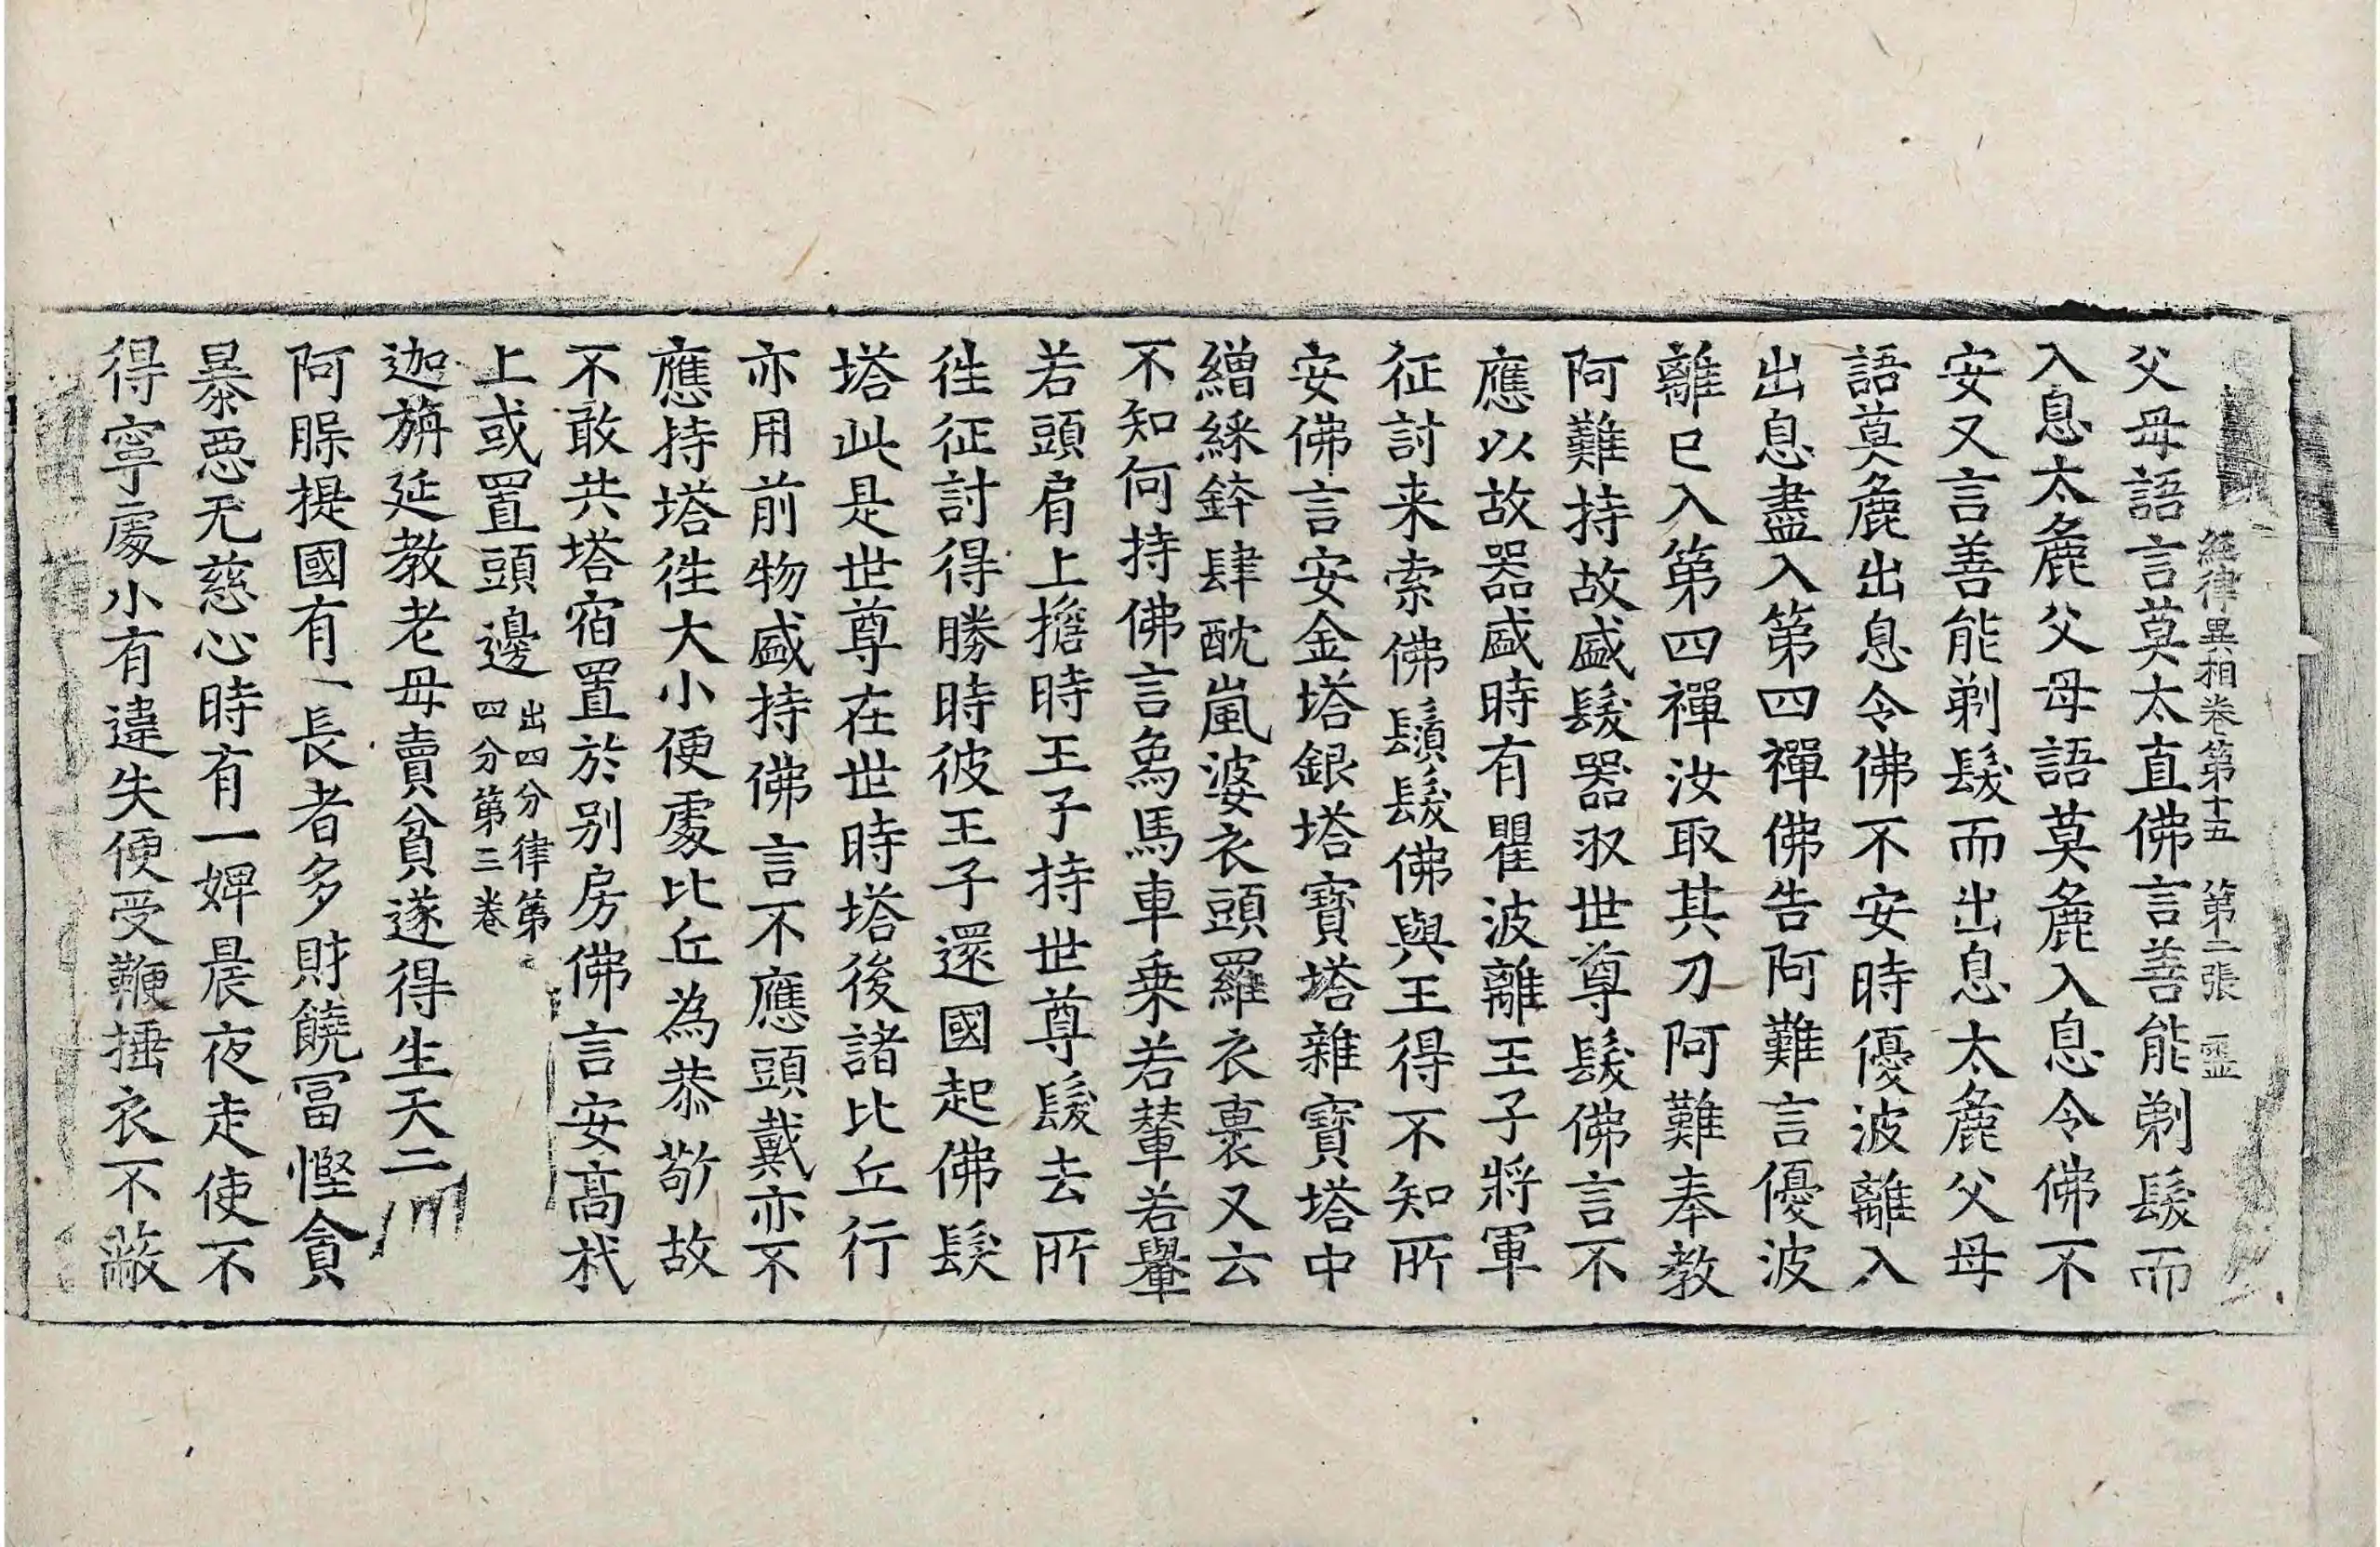 經律異相卷第十五 第二張 霊
父母語言莫太直佛言善能剃髮而
入息太麁父母語莫麁入息令佛不
安又言善能剃髮而出息太麁父母
語莫麁出息令佛不安時優波離入
出息盡入第四禪佛告阿難言優波
離已入第四禪汝取其刀阿難奉教
阿難持故盛髮器収世尊髮佛言不
應以故器盛時有瞿波離王子將軍
征討来索佛鬚髮佛與王得不知所
安佛言安金塔銀塔寳塔雜寳塔中
繒綵鉡肆酖嵐婆衣頭羅衣裹又云
不知何持佛言象馬車乗若輦若轝
若頭肩上擔時王子持世尊髮去所
徃征討得勝時彼王子還國起佛髮
塔此是世尊在世時塔後諸比丘行
亦用前物盛持佛言不應頭戴亦不
應持塔徃大小便處比丘為恭敬故
不敢共塔宿置於别房佛言安髙杙
上或置頭邊 出四分律第四分第三卷
迦旃延教老母賣貧遂得生天二
阿䐁提國有一長者多財饒冨慳貪
暴悪无慈心時有一婢晨夜走使不
得寧處小有違失便受鞭捶衣不蔽